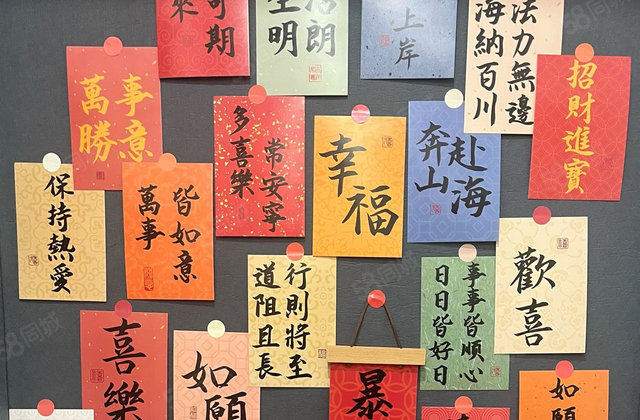 來
可期
明
朗
上岸
海納百川
法力無邊
萬事
勝意
多喜樂
常安寧
幸福
奔赴
山海
招財進寶
保持熱愛
萬事
皆如意
道阻且長
行則將至
事事皆順心
日日皆好日
歡喜
喜樂
如願
暴
如願